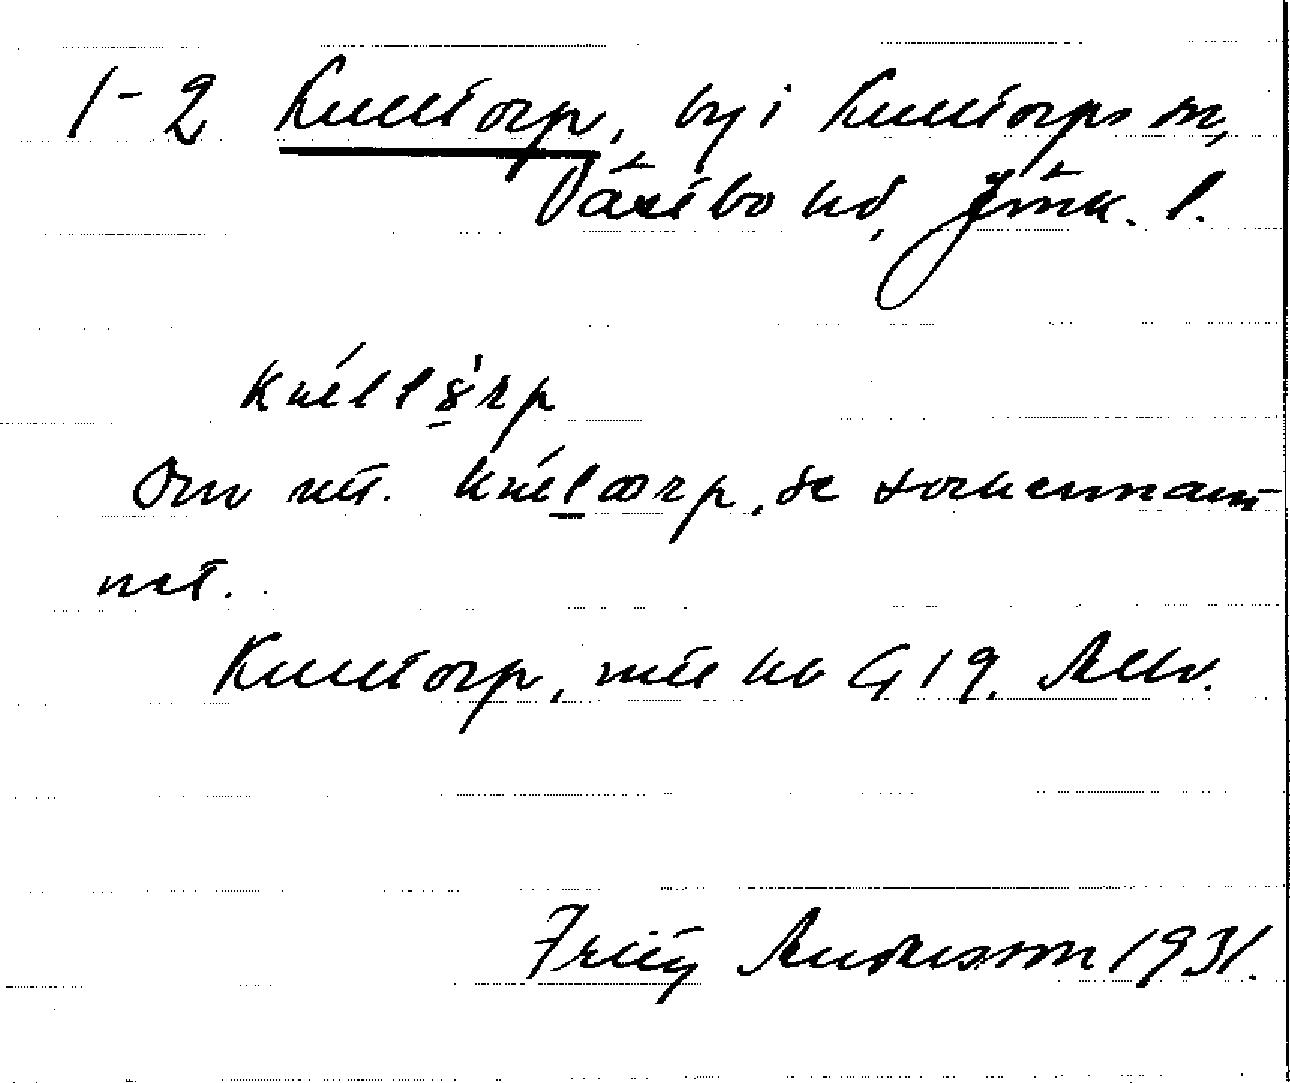 1-2 Kulltorp, by i Kulltorps sn,
Västbo hd, Jönk. l.
Om utt. se sockennam
net.
Kulltorp, mtl no G 19. Abv.
Fritz Andersson 1931.